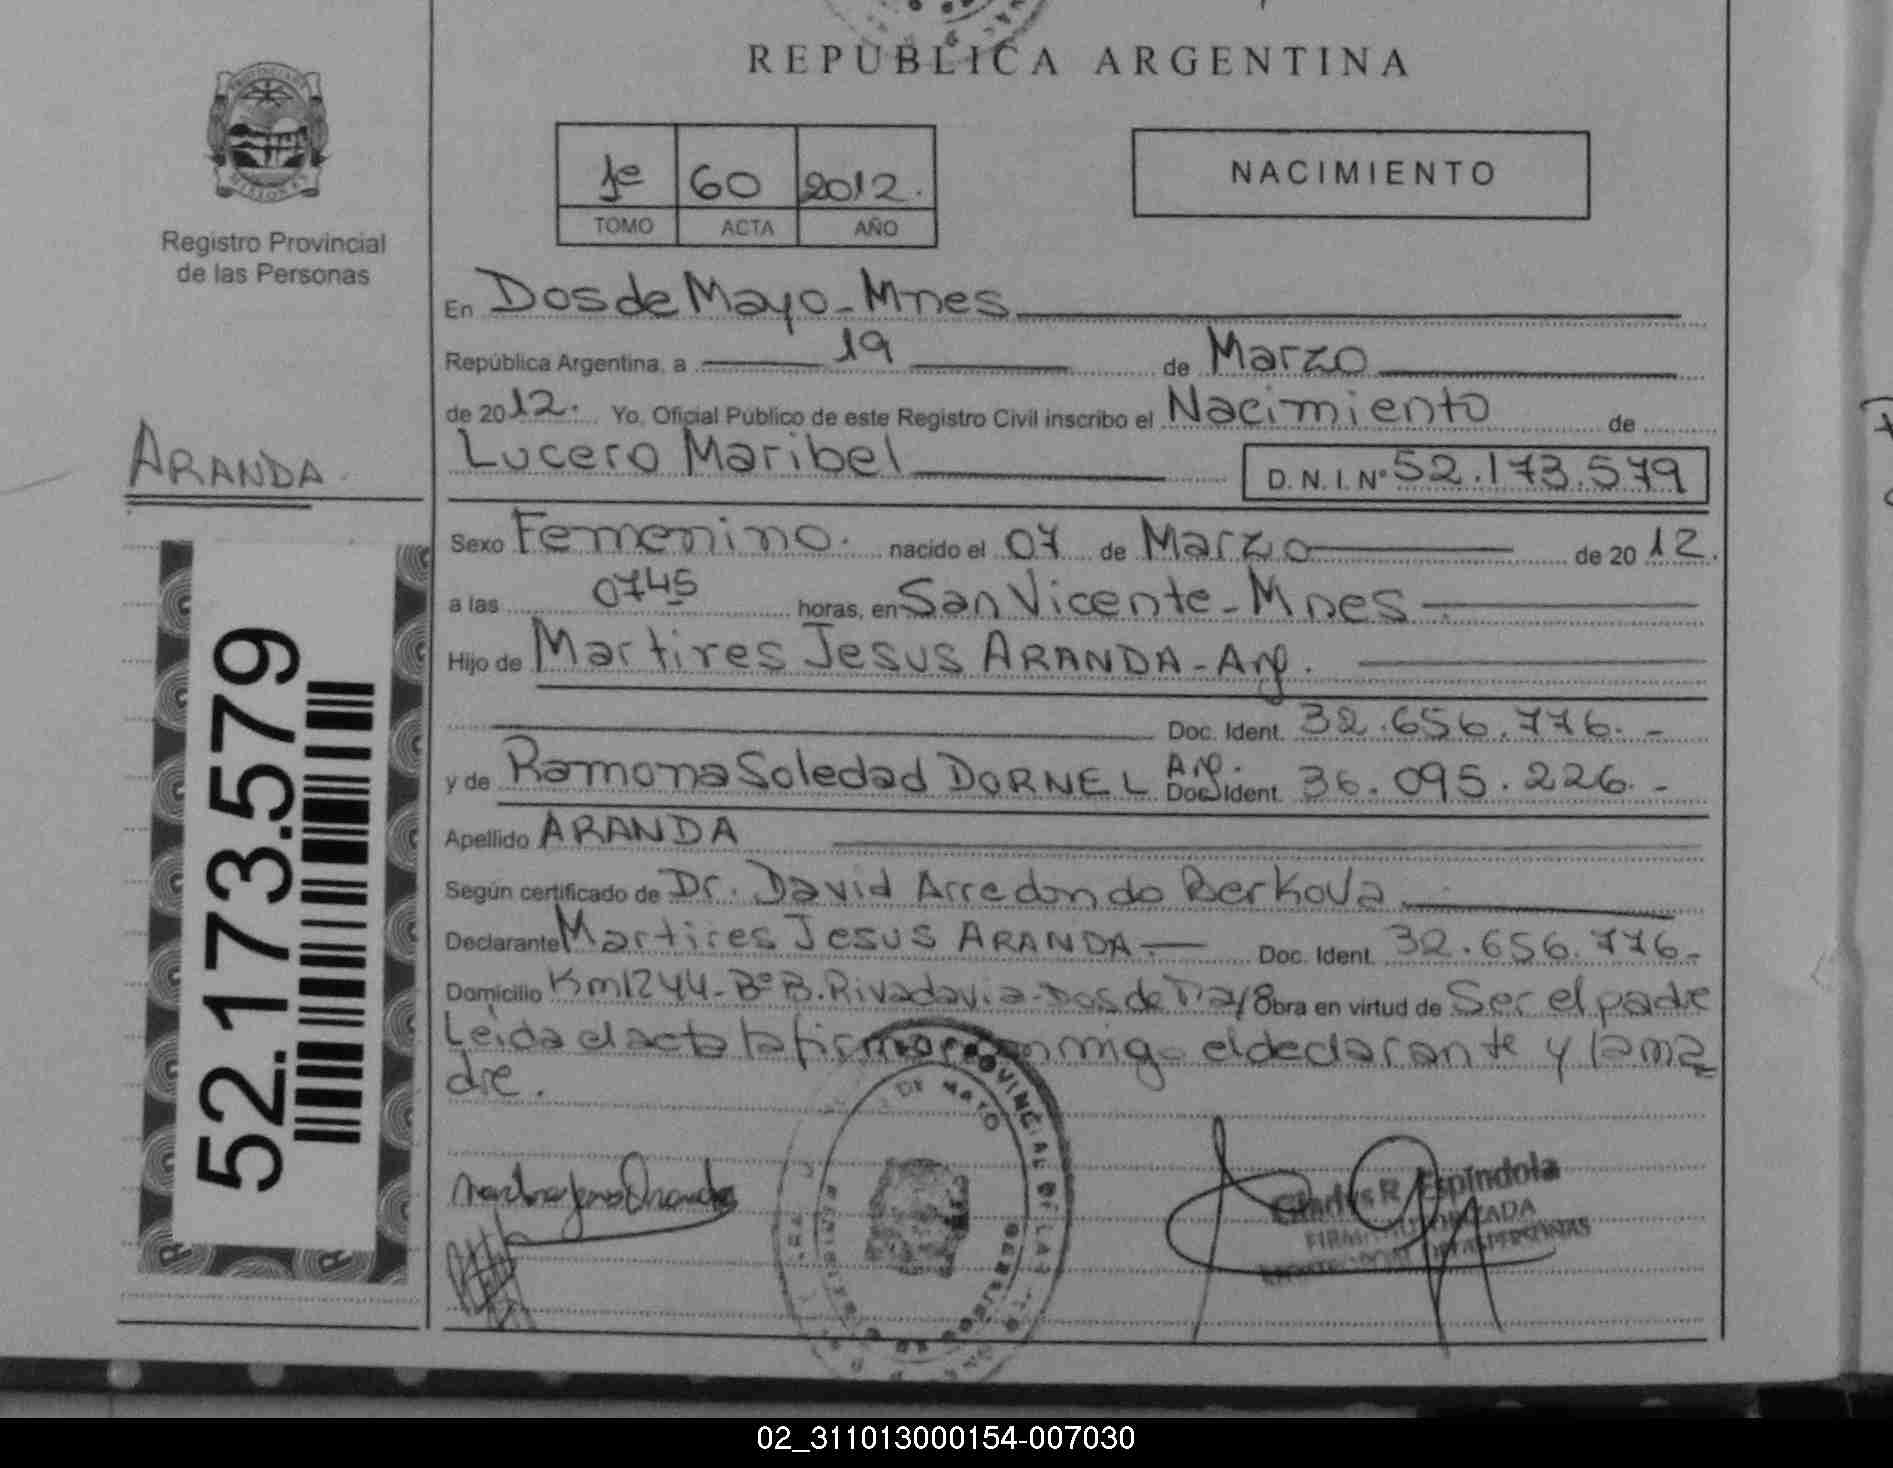 REPUBLICA ARGENTINA
MISIONES
Registro Provincial
de las Personas
1º 60 2012.
TOMO ACTA AÑO
NACIMIENTO
En Dos de Mayo - Mnes
República Argentina, a 19 de Marzo
de 2012. Yo, Oficial Público de este Registro Civil inscribo el Nacimiento de
Lucero Maribel D.N.I.Nº 52.173.579
ARANDA
Sexo Femenino. nacido el 07 de Marzo de 2012.
a las 0745 horas, en San Vicente - Mnes
Hijo de Martires Jesus ARANDA - Arg.
Doc. Ident. 32.656.776.-
y de Ramona Soledad DORNEL Arg. Doc. Ident. 36.095.226.-
Apellido ARANDA
Según certificado de Dr. David Arredondo Berkova
Declarante Martires Jesus ARANDA.- Doc. Ident. 32.656.776.-
Domicilio Km1244-BºB.Rivadavia-Dos de Mayo Obra en virtud de Ser el padre
Leida el acta la firman conmigo el declarante y la ma
dre.
52.173.579
PROVINCIAL DE LAS
DE MAYO
Gladys R. Espíndola
FIRMA AUTORIZADA
02_311013000154-007030